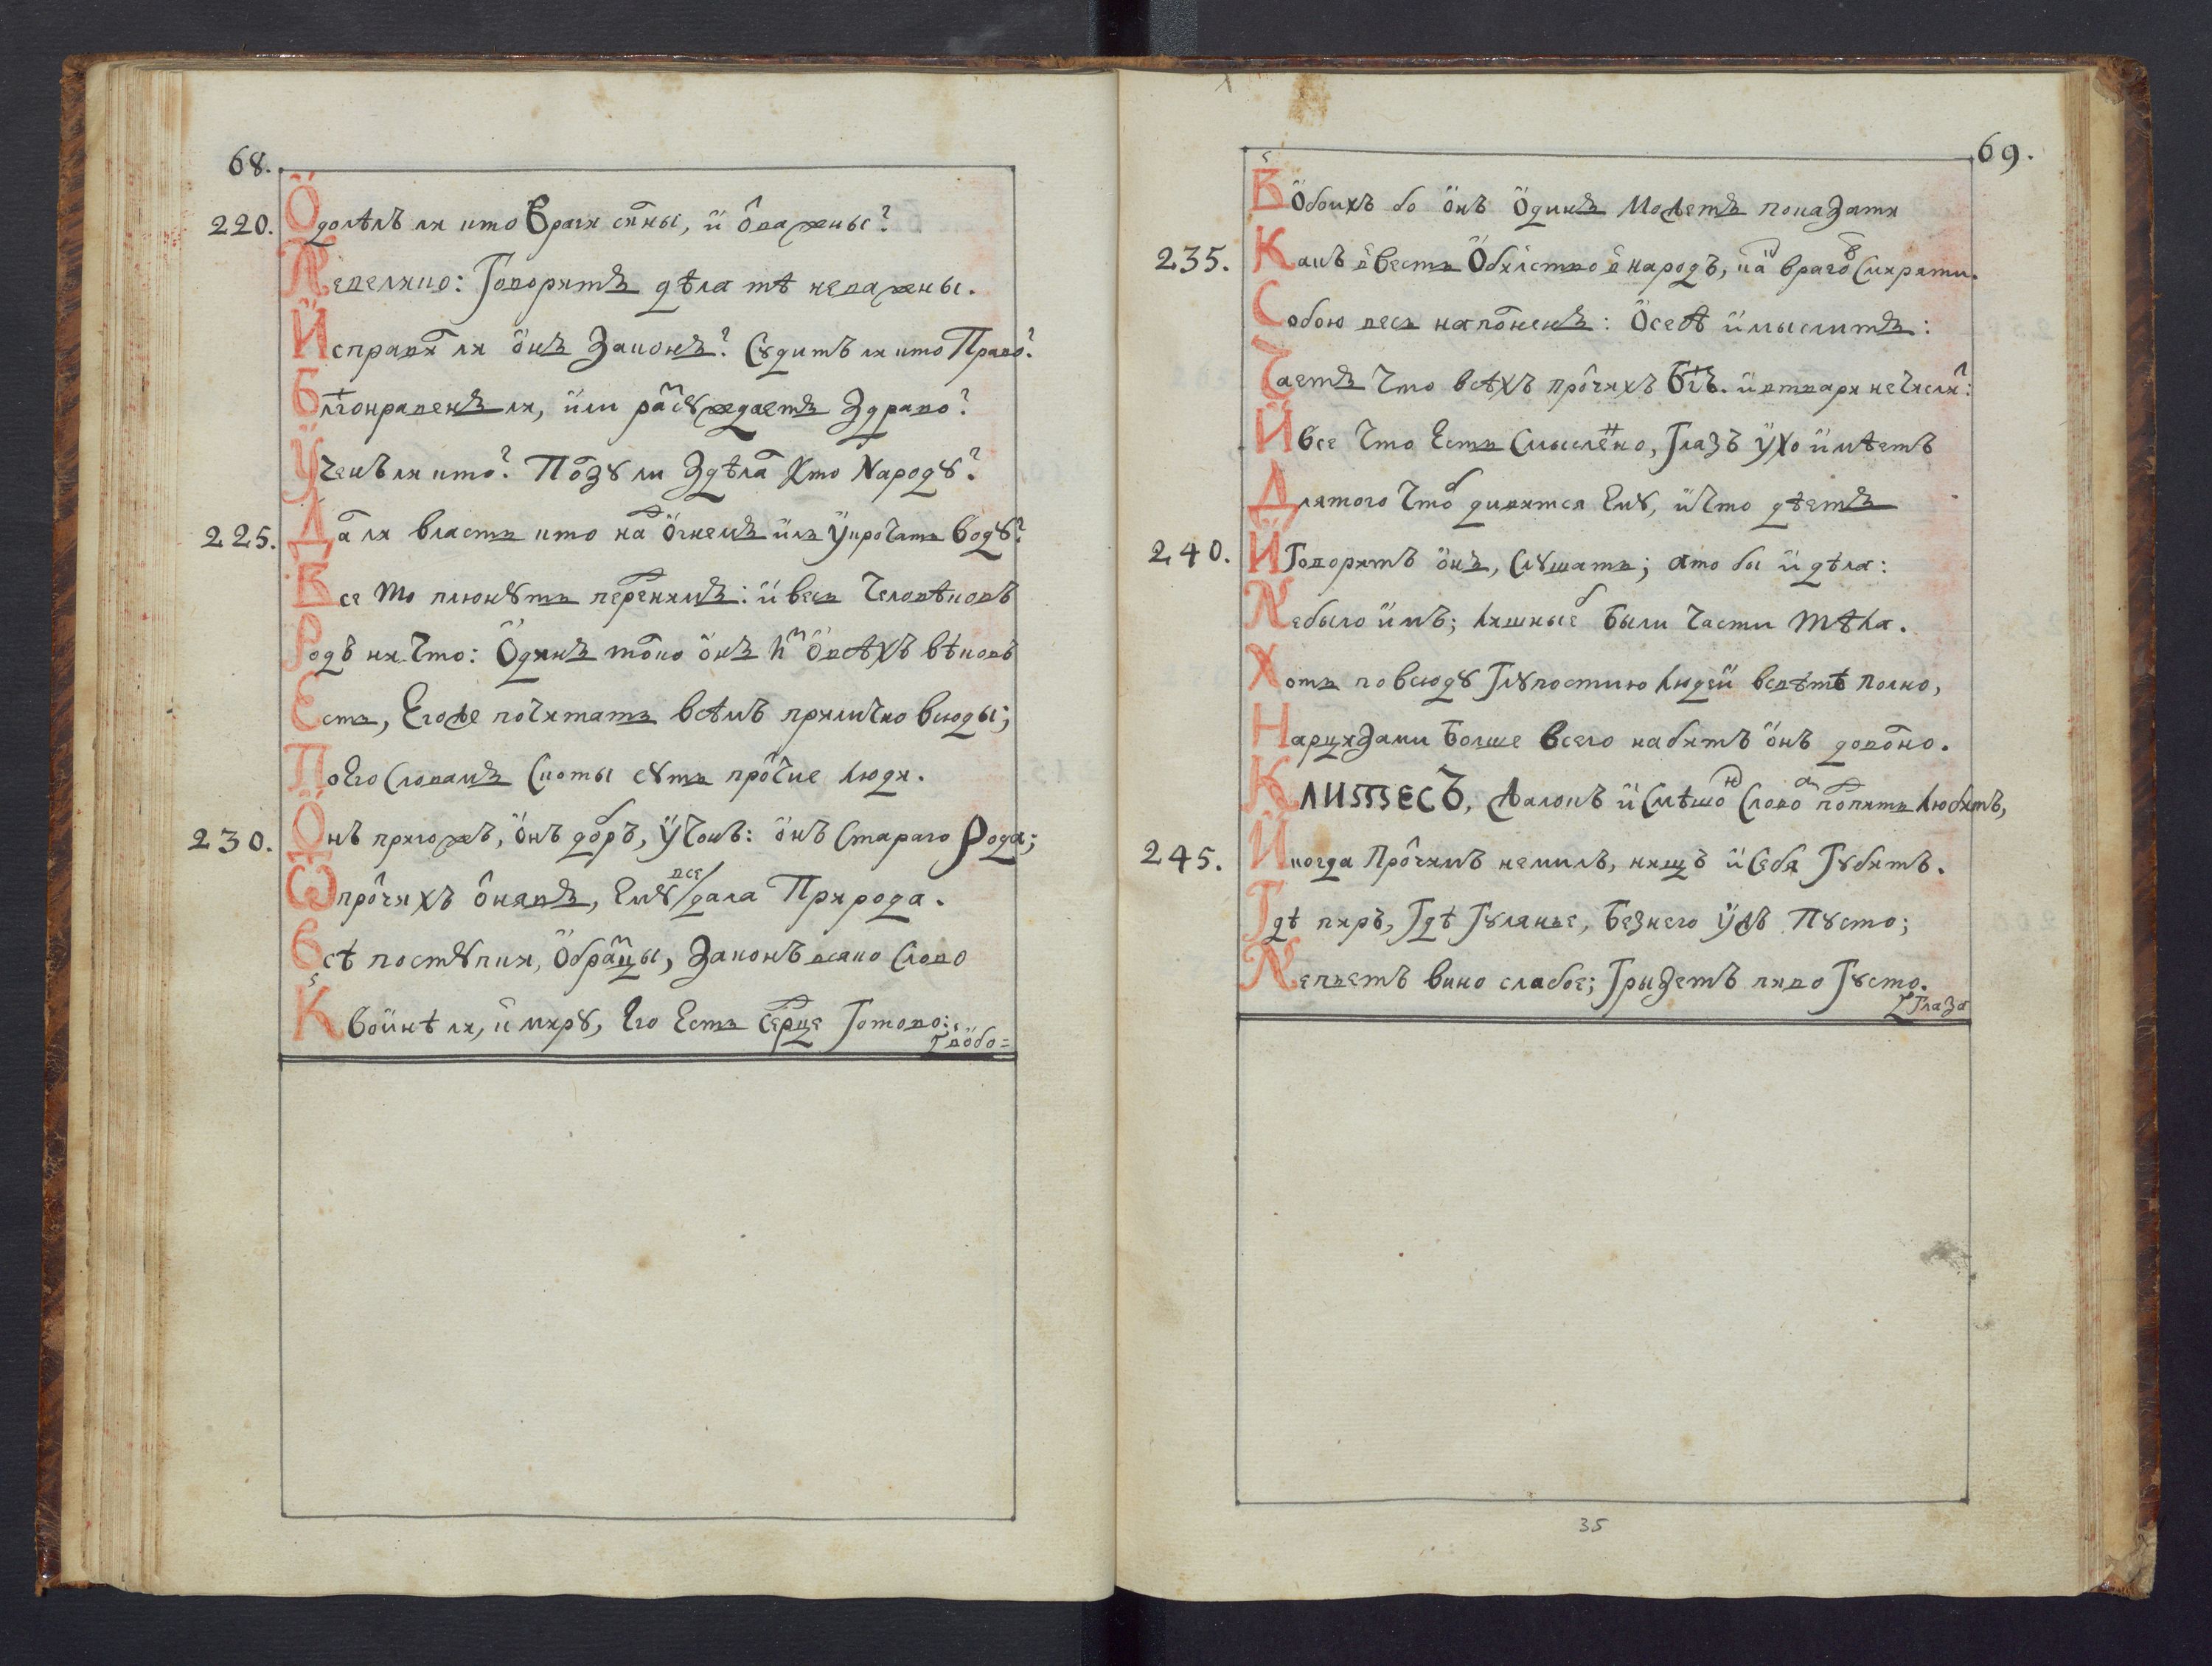 68.
220. Одолѣлъ ли кто враги си́ны, и ѻ҆важны?
Невелико: Говоритъ дѣла тѣ неважны.
Исправи ли онъ Законъ? Сꙋдитъ ли кто Право?
Блгонравенъ ли, или расꙋждаетъ Здраво?
Ученъ ли кто? Позꙋ ли Здѣла Кто Народꙋ?
225. Да ли власть кто на Огнемъ иль Укрочать водꙋ?
Все то плюнꙋть перенимъ: и весь Человѣковъ
Родъ ни что: Одинъ токо онъ ѿ всѣхъ вѣковъ
Есть, Егоже почитать всѣмъ прилично всюды;
По Его Словамъ Скоты сꙋть прочие люди.
230. Онъ пригожъ, онъ добръ, Учонъ: онъ Стараго Рода;
Ѿ прочихъ онявъ, Емꙋ все дала Природа.
Всѣ постꙋпки, Образцы, Законъ всяко Слово
К войнѣ ли, и мирꙋ, Его Есть Серце Готово:
Вобо=
69.
В Обоихъ бо онъ Одинъ Можетъ показати
235. Какъ ввесть Обилство в народъ, на враго Смирити.
Собою весь напоненъ: О себѣ и мыслитъ:
Чаетъ Что всѣхъ прочихъ Бгъ. и втвари не числи:
И все Что Есть Смыслено, Глазъ Ухо имѣетъ
Для того Чтоб дивится Емꙋ, и Что дѣетъ
240. И Говоритъ онъ, Слꙋшать; а то бы и дѣла:
Не было имъ; лишные б были части Тѣла.
Хоть повсюдꙋ Глꙋпостию людей всвѣтѣ полно,
Нарцизами Болше всего набитъ онъ довоно.
КЛИТТЕСЪ, жалокъ и Смѣшно Слово попить любитъ,
245. Иногда Прочимъ немилъ, нищъ и Себя Гꙋбитъ.
Гдѣ пиръ, Гдѣ Гꙋлянье, Безнего Ужъ Пꙋсто;
Непьетъ вино слабое; Грызетъ пиво Гꙋсто.
Глаза
35